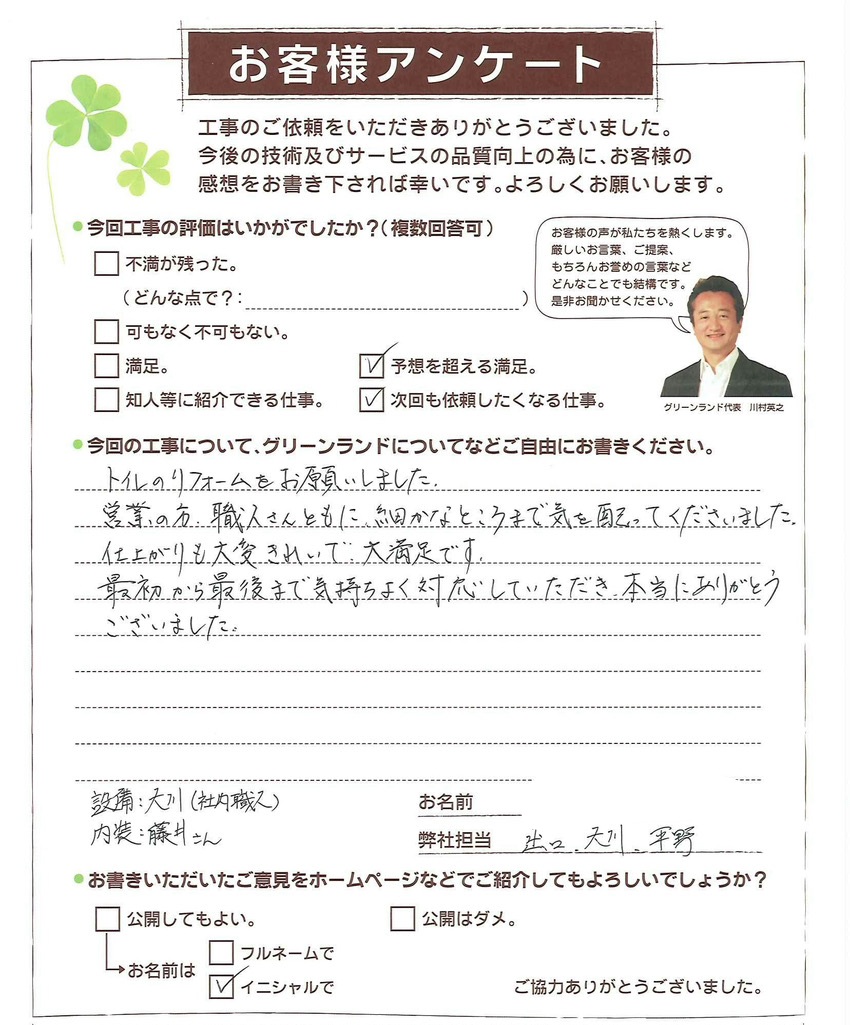 お客様アンケート
工事のご依頼をいただきありがとうございました。
今後の技術及びサービスの品質向上の為に、お客様の
感想をお書き下されば幸いです。よろしくお願いします。
今回工事の評価はいかがでしたか？（複数回答可）
不満が残った。
（どんな点で？：　　　　）
可もなく不可もない。
満足。
予想を超える満足。
知人等に紹介できる仕事。
次回も依頼したくなる仕事。
お客様の声が私たちを熱くします。
厳しいお言葉、ご提案、
もちろんお誉めの言葉など
どんなことでも結構です。
是非お聞かせください。
グリーンランド代表　川村英之
今回の工事について、グリーンランドについてなどご自由にお書きください。
トイレのリフォームをお願いしました。
営業の方、職人さんともに、細かなところまで気を配ってくださいました。
仕上がりも大変きれいで、大満足です。
最初から最後まで気持ちよく対応していただき、本当にありがとう
ございました。
設備：天川（社内職人）
内装：藤井さん
お名前
弊社担当　出口、天川、平野
お書きいただいたご意見をホームページなどでご紹介してもよろしいでしょうか？
公開してもよい。
公開はダメ。
お名前は
フルネームで
イニシャルで
ご協力ありがとうございました。